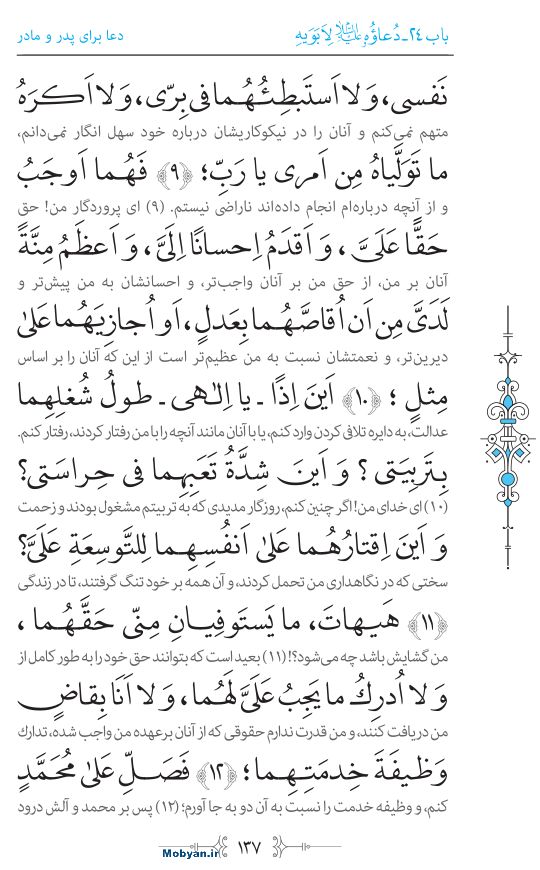 باب ۲۴ـ دُعاؤُهُ عَلَيْهِ‌السَّلامُ لِاَبَوَيهِ
دعا برای پدر و مادر
نَفسی، وَ لا اَستَبطِئُهُما فی بِرّی، وَ لا اَكرَهُ
متهم نمی‌کنم و آنان را در نیکوکاریشان درباره خود سهل انگار نمی‌دانم،
ما تَوَلَّياهُ مِن اَمری يا رَبِّ؛ ﴿۹﴾ فَهُما اَوجَبُ
و از آنچه درباره‌ام انجام داده‌اند ناراضی نیستم. (۹) ای پروردگار من! حق
حَقًّا عَلَیَّ، وَ اَقدَمُ اِحسانًا اِلَیَّ، وَ اَعظَمُ مِنَّةً
آنان بر من، از حق من بر آنان واجب‌تر، و احسانشان به من پیش‌تر و
لَدَیَّ مِن اَن اُقاصَّهُما بِعَدلٍ، اَو اُجازِيَهُما عَلیٰ
دیرین‌تر، و نعمتشان نسبت به من عظیم‌تر است از این که آنان را بر اساس
مِثلٍ؛ ﴿۱۰﴾ اَينَ اِذًا ـ يا اِلـٰهی ـ طولُ شُغلِهِما
عدالت، به دایره تلافی کردن وارد کنم، یا با آنان مانند آنچه را با من رفتار کردند، رفتار کنم.
بِتَربِيَتی؟ وَ اَينَ شِدَّةُ تَعَبِهِما فی حِراسَتی؟
(۱۰) ای خدای من! اگر چنین کنم، روزگار مدیدی که به تربیتم مشغول بودند و زحمت
وَ اَينَ اِقتارُهُما عَلیٰ اَنفُسِهِما لِلتَّوسِعَةِ عَلَیَّ؟
سختی که در نگاهداری من تحمل کردند، و آن همه بر خود تنگ گرفتند، تا در زندگی
﴿۱۱﴾ هَيهاتَ، ما يَستَوفِيانِ مِنّی حَقَّهُما،
من گشایش باشد چه می‌شود؟! (۱۱) بعید است که بتوانند حق خود را به طور کامل از
وَ لا اُدرِكُ ما يَجِبُ عَلَیَّ لَهُما، وَ لا اَنَا بِقاضٍ
من دریافت کنند، و من قدرت ندارم حقوقی که از آنان برعهده من واجب شده، تدارک
وَظيفَةَ خِدمَتِهِما؛ ﴿۱۲﴾ فَصَلِّ عَلیٰ مُحَمَّدٍ
کنم، و وظیفه خدمت را نسبت به آن دو به جا آورم؛ (۱۲) پس بر محمد و آلش درود
۱۳۷
Mobyan.ir